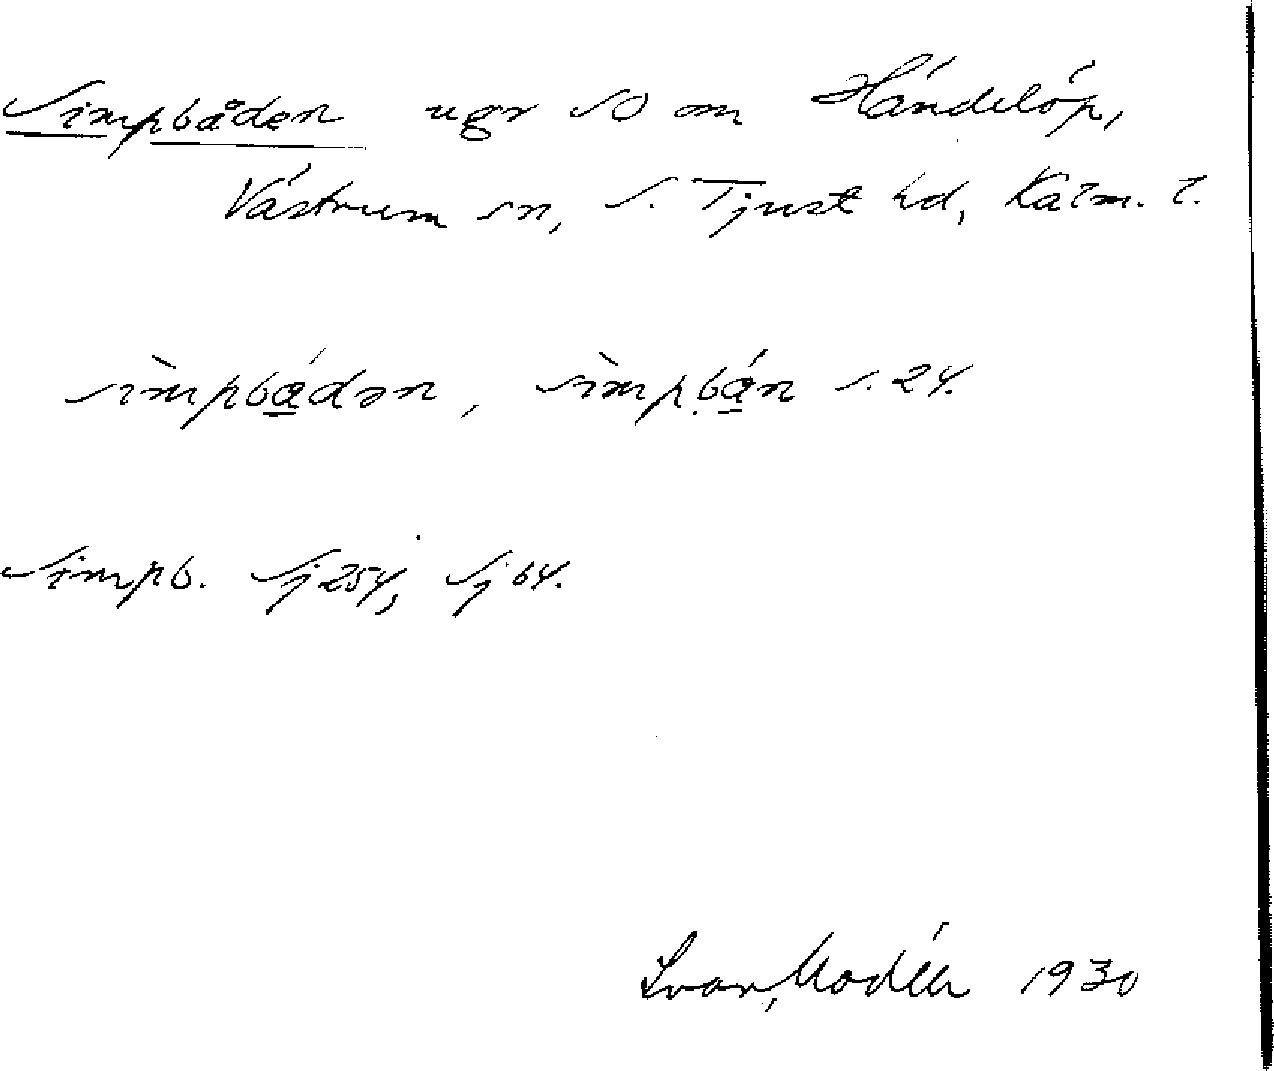 Simpbåden ugr SO om Händelöp,
Västrum sn, S. Tjust hd, Kalm. l.
sìmpbádən, sìmpbán s. 24.
Simpb. Sj 254, Sj 64.
Ivar Modéer 1930